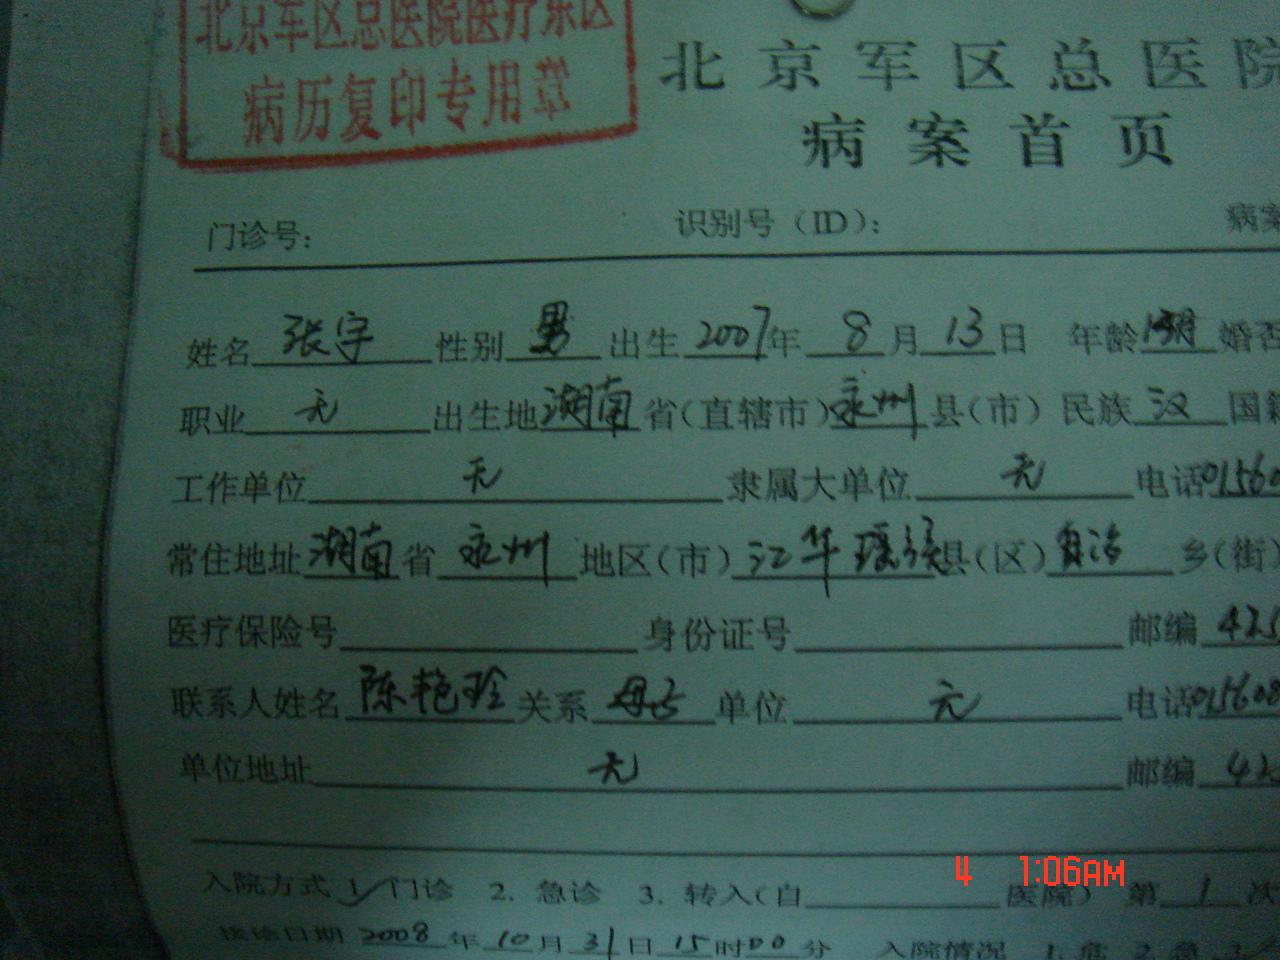 北京军区总医院医疗东区
病历复印专用章
北京军区总医院
病案首页
门诊号： 识别号（ID）： 病案
姓名 张宇 性别 男 出生 2007 年 8 月 13 日 年龄 婚否
职业 无 出生地 湖南 省（直辖市） 永州 县（市） 民族 汉 国籍
工作单位 无 隶属大单位 无 电话 01560
常住地址 湖南 省 永州 地区（市） 江华瑶族 县（区） 自治 乡（街）
医疗保险号 身份证号 邮编 425
联系人姓名 陈艳玲 关系 母子 单位 无 电话 015608
单位地址 无 邮编 42
入院方式 1 门诊 2. 急诊 3. 转入（自 医院） 第 1 次
接诊日期 2008 年 10 月 31 日 15 时 00 分 入院情况 1. 危 2. 急 3.
4 1:06AM